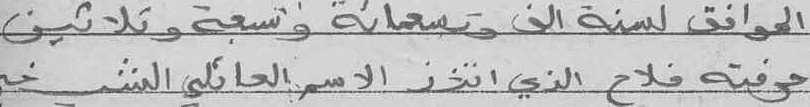 الموافق لسنة الف وتسعمائة وتسعة وثلاثين
حرفته فلاح الذي اتخذ الاسم العائلي